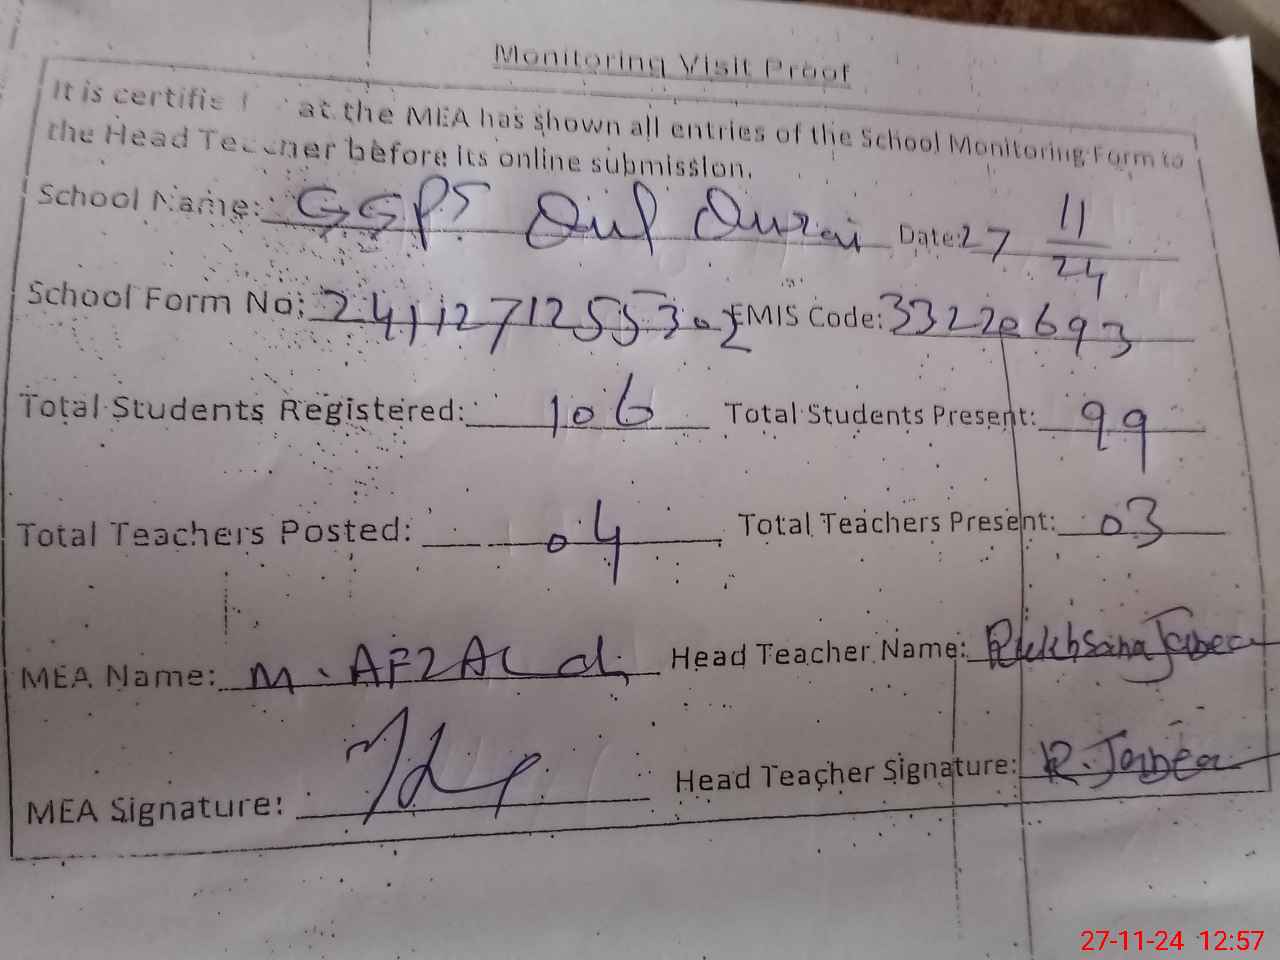 Monitoring Visit Proof
It is certifie at the MEA has shown all entries of the School Monitoring Form to
the Head Teacher before its online submission.
School Name: GGPS Date: 27 11/24
School Form No: EMIS Code: 33220693
Total Students Registered: 106 Total Students Present: 99
Total Teachers Posted: 04 Total Teachers Present: 03
MEA Name: M. AFZAL Head Teacher Name: Rukhsana Jabeen
MEA Signature: Head Teacher Signature: R. Jabeen
27-11-24 12:57